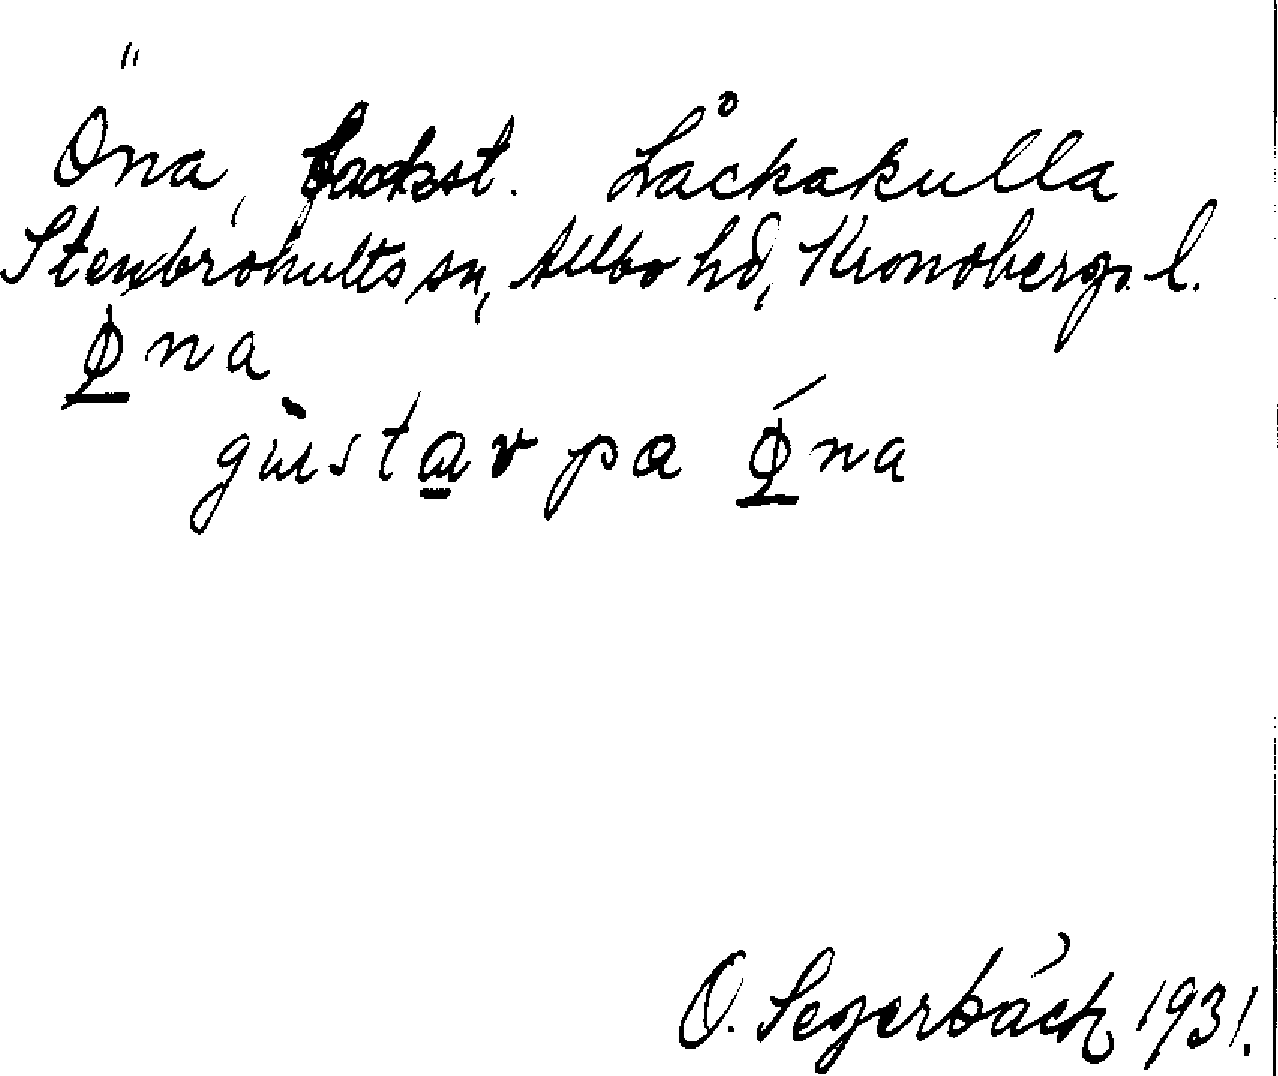 Öna, backst. Låckakulla
Stenbrohults sn, Allbo hd, Kronobergs l.
Φ̲na
gùsta̲v pa Φ̲́na
O. Segerbäck 1931.